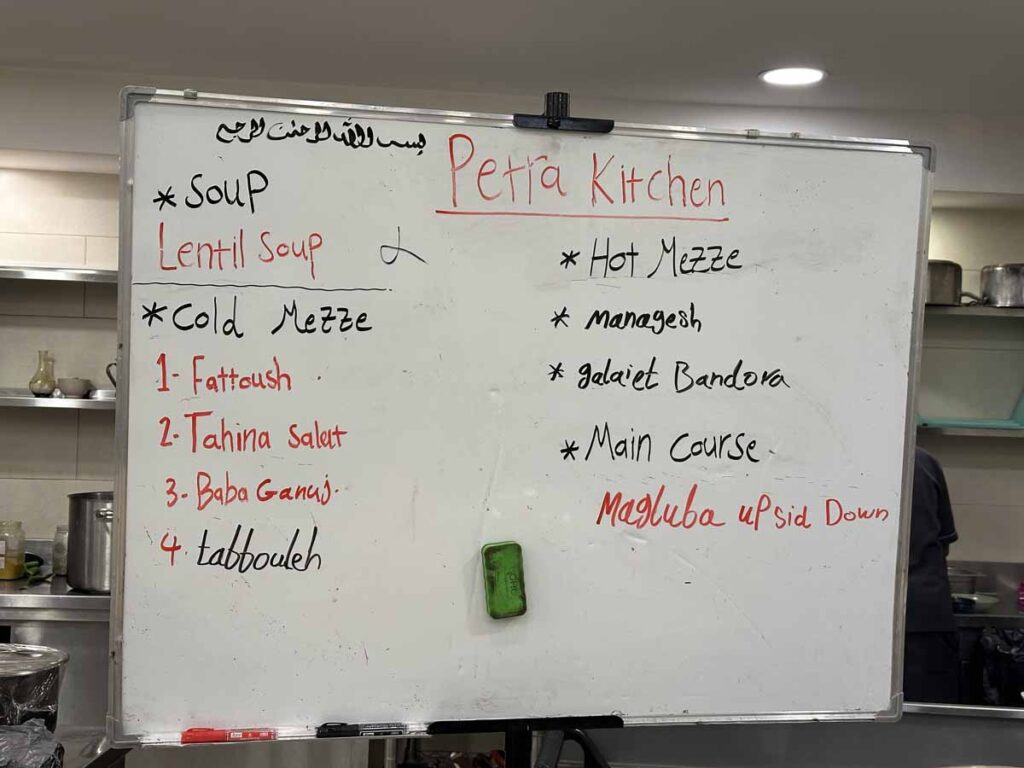 بسم الله الرحمن الرحيم
Petra Kitchen
* Soup
Lentil Soup
* Cold Mezze
1- Fattoush
2- Tahina Salat
3- Baba Ganuj
4. tabbouleh
* Hot Mezze
* Managesh
* galaiet Bandora
* Main Course
Magluba upsid Down